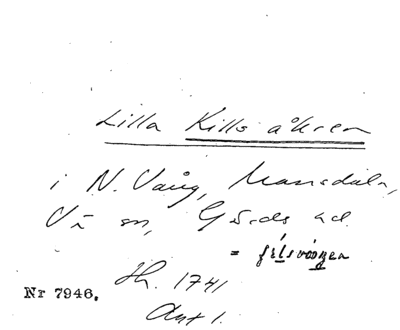 Lilla Kills åkren
i N. Vång, Mansdala,
Vä sn, Gärds hd.
= filsvången
Lh. 1741
Nr 7946.
Akt 1.